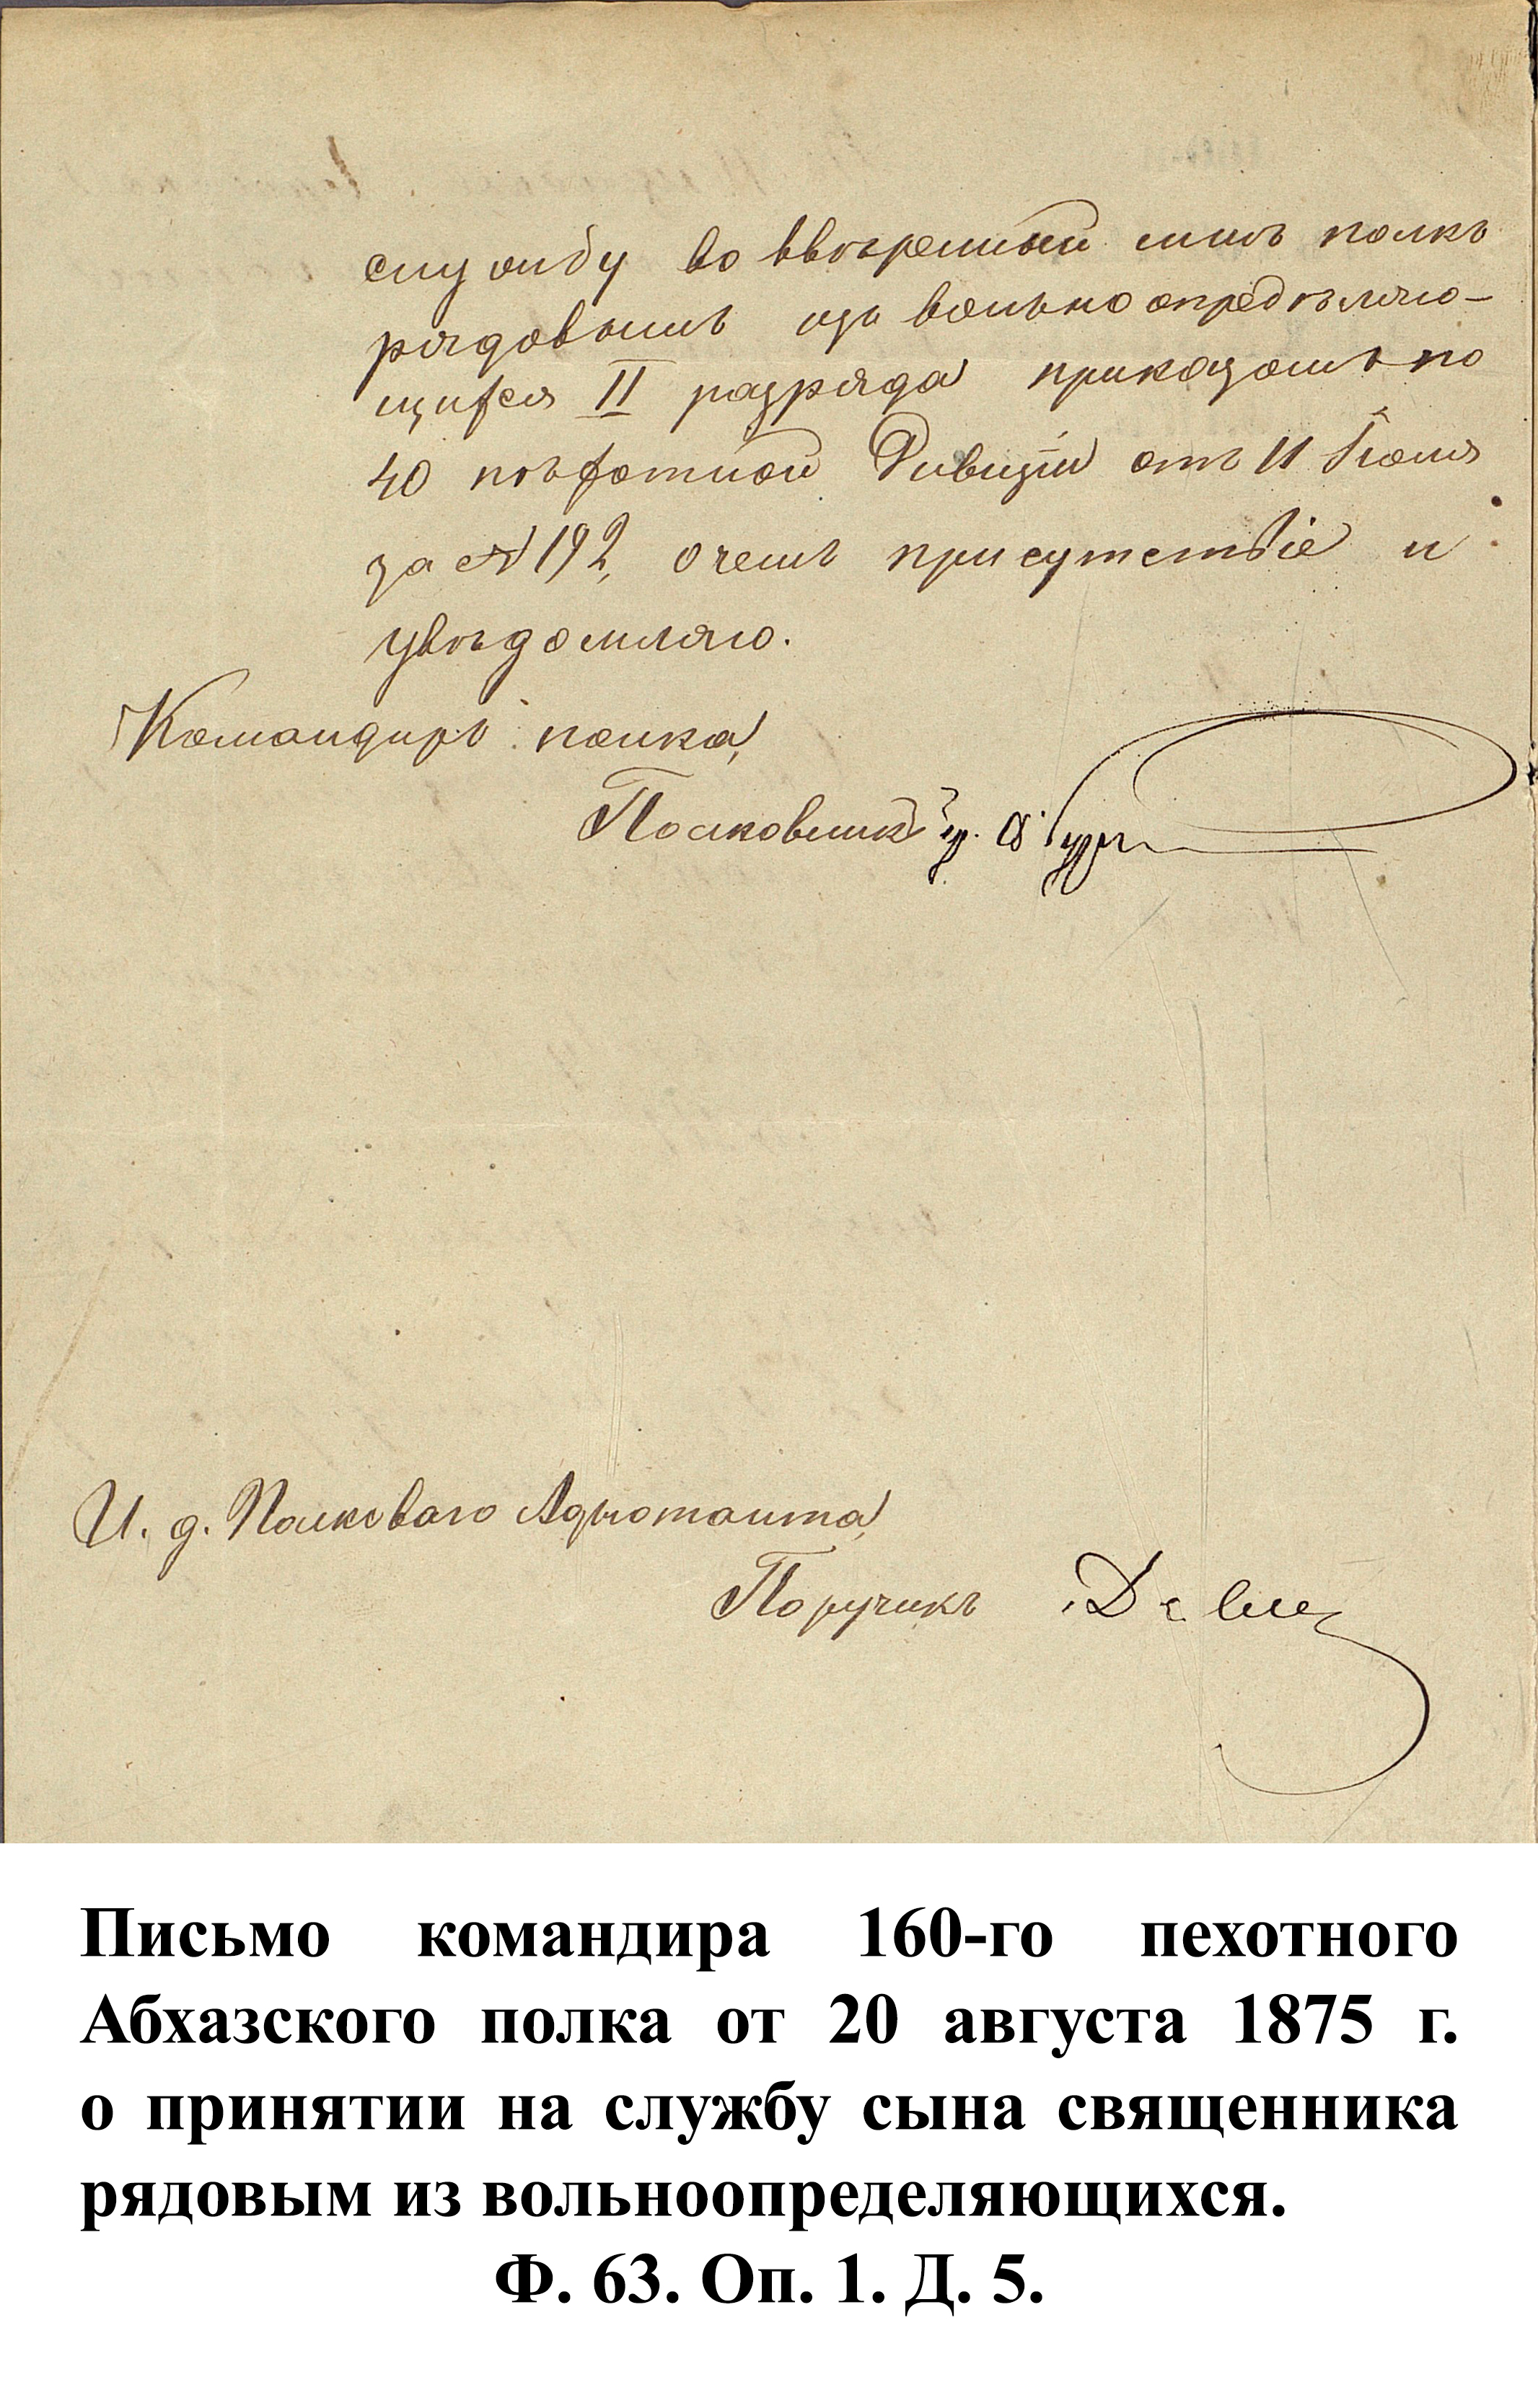 службу во ввѣренный мнѣ полкъ
рядовымъ изъ вольноопредѣляю-
щихся II разряда приказомъ по
40 пѣхотной Дивизіи отъ 11 Іюля
за № 192, о чемъ присутствіе и
увѣдомляю.
Командиръ полка,
Полковникъ
И. д. Полковаго Адъютанта,
Поручикъ
Письмо командира 160-го пехотного
Абхазского полка от 20 августа 1875 г.
о принятии на службу сына священника
рядовым из вольноопределяющихся.
Ф. 63. Оп. 1. Д. 5.